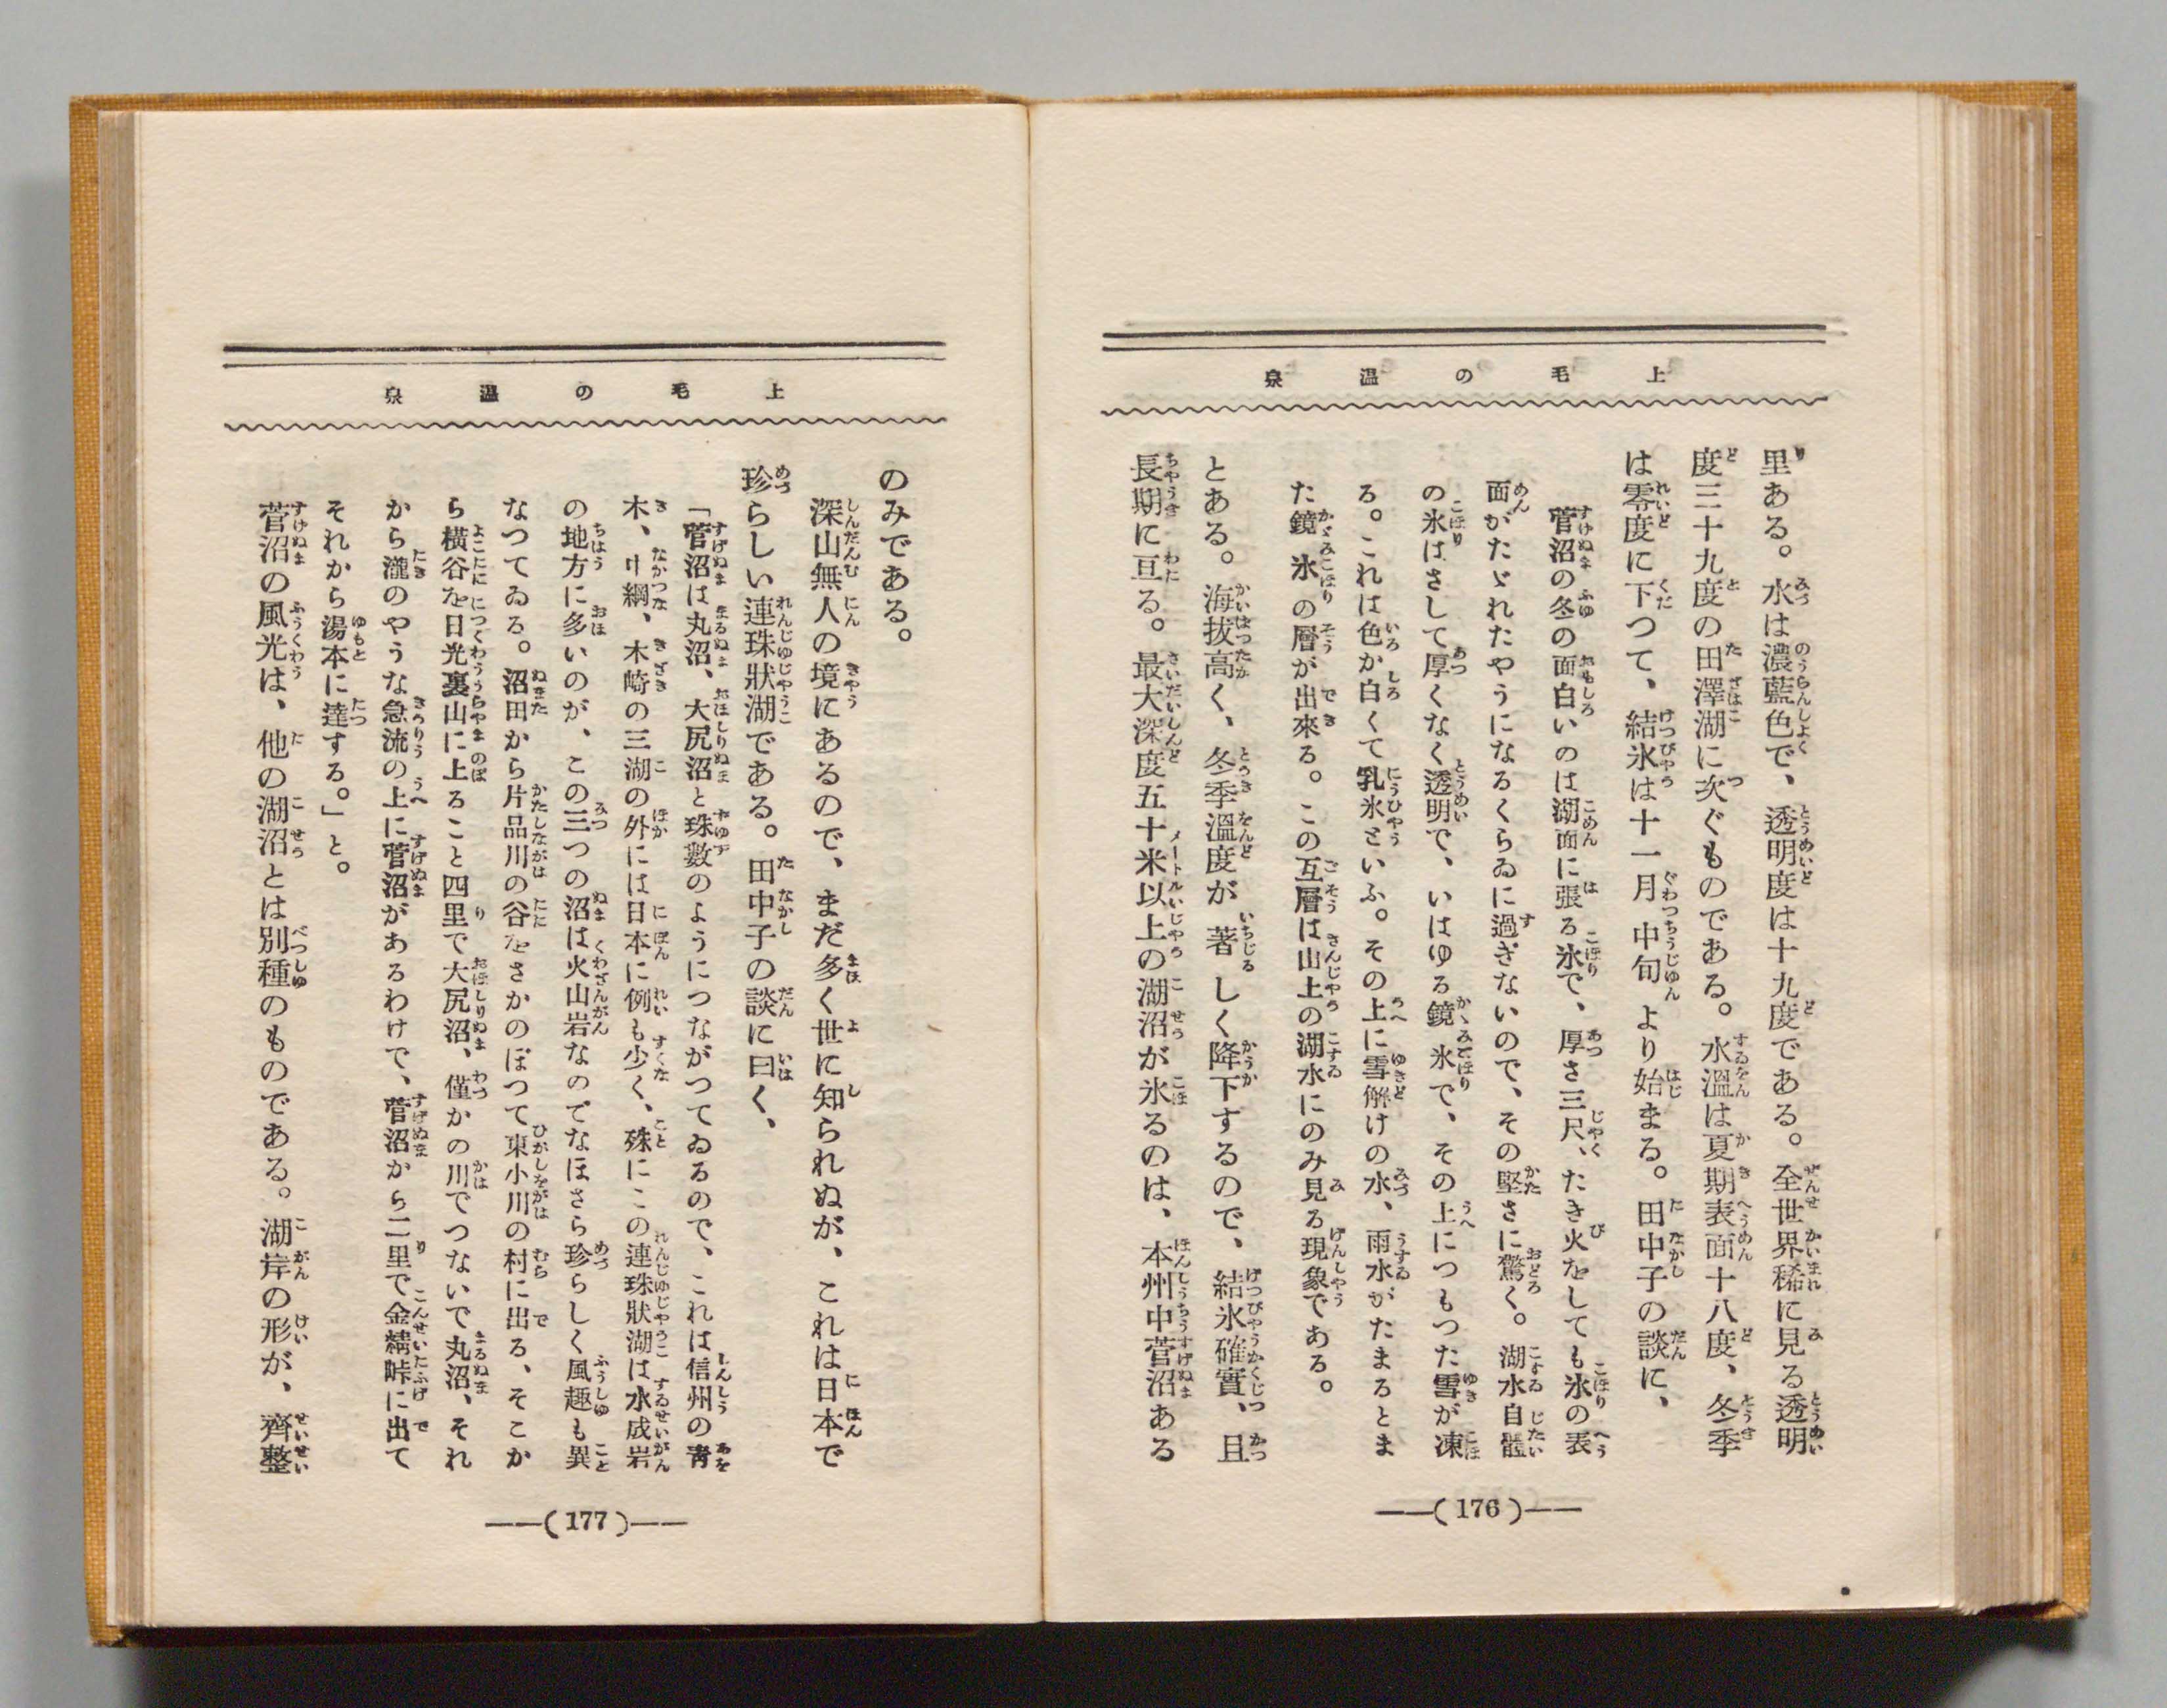 上毛の温泉
里ある。水は濃藍色で、透明度は十九度である。全世界稀に見る透明
度三十九度の田澤湖に次ぐものである。水溫は夏期表面十八度、冬季
は零度に下つて、結氷は十一月中旬より始まる。田中子の談に、
菅沼の冬の面白いのは湖面に張る氷で、厚さ三尺、たき火をしても氷の表
面がたゞれたやうになるくらゐに過ぎないので、その堅さに驚く。湖水自體
の氷はさして厚くなく透明で、いはゆる鏡氷で、その上につもつた雪が凍
る。これは色か白くて乳氷といふ。その上に雪解けの水、雨水がたまるとま
た鏡氷の層が出來る。この互層は山上の湖水にのみ見る現象である。
とある。海拔高く、冬季溫度が著しく降下するので、結氷確實、且
長期に亘る。最大深度五十米以上の湖沼が氷るのは、本州中菅沼ある
(176)
上毛の温泉
のみである。
深山無人の境にあるので、まだ多く世に知られぬが、これは日本で
珍らしい連珠狀湖である。田中子の談に曰く、
「菅沼は丸沼、大尻沼と珠數のようにつながつてゐるので、これは信州の靑
木、中綱、木崎の三湖の外には日本に例も少く、殊にこの連珠狀湖は水成岩
の地方に多いのが、この三つの沼は火山岩なのでなほさら珍らしく風趣も異
なつてゐる。沼田から片品川の谷をさかのぼつて東小川の村に出る、そこか
ら橫谷を日光裏山に上ること四里で大尻沼、僅かの川でつないで丸沼、それ
から瀧のやうな急流の上に菅沼があるわけで、菅沼から二里で金精峠に出て
それから湯本に達する。」と。
菅沼の風光は、他の湖沼とは別種のものである。湖岸の形が、齊整
(177)